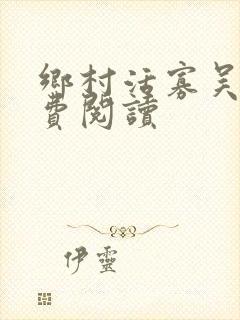 鄉村活寡吴
費閱讀
伊靈